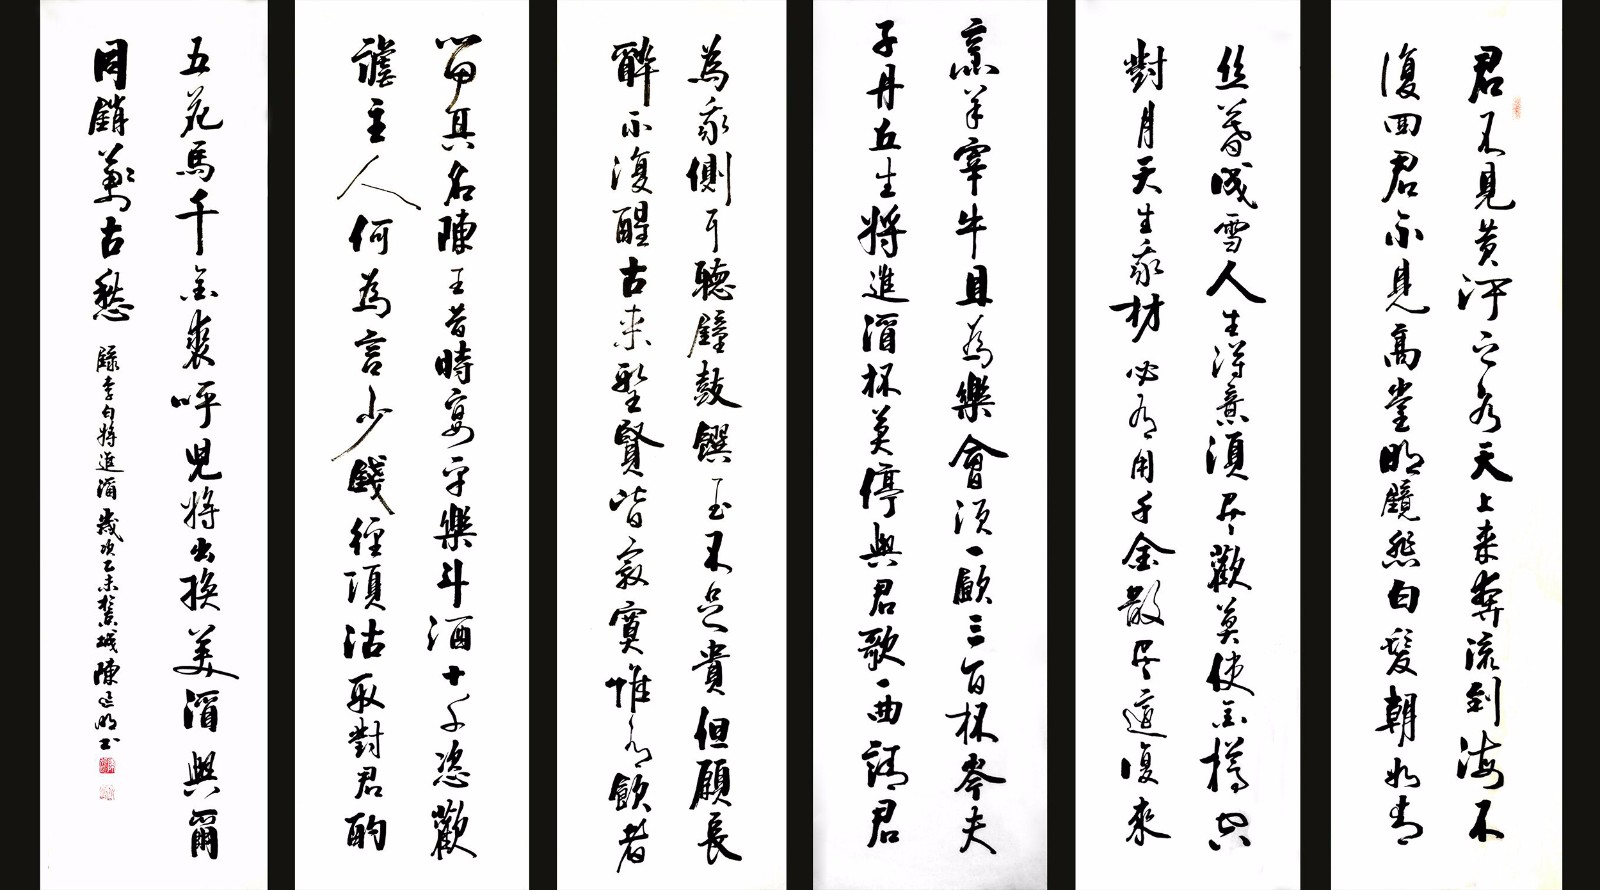 君不見黃河之水天上來奔流到海不
復回君不見高堂明鏡悲白髮朝如青
丝暮成雪人生得意須尽歡莫使金樽空
對月天生我材必有用千金散尽還復來
烹羊宰牛且為樂會須一飲三百杯岑夫
子丹丘生將進酒杯莫停與君歌一曲請君
為我側耳聽鐘鼓饌玉不足貴但願長
醉不復醒古來聖賢皆寂寞惟有飲者
留其名陳王昔時宴平樂斗酒十千恣歡
謔主人何為言少錢徑須沽取對君酌
五花馬千金裘呼児將出換美酒與爾
同銷萬古愁 錄李白將進酒 歲次乙未 城陳明书